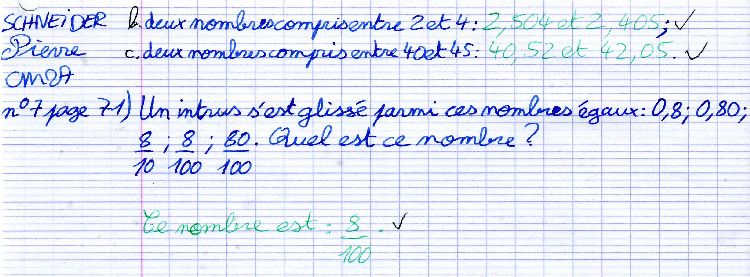 SCHNEIDER b. deux nombres compris entre 2 et 4 : 2,504 et 2,405; ✓
Pierre c. deux nombres compris entre 40 et 45 : 40,52 et 42,05. ✓
CM2A
n°7 page 71) Un intrus s'est glissé parmi ces nombres égaux : 0,8; 0,80;
8/10 ; 8/100 ; 80/100. Quel est ce nombre ?
Ce nombre est : 8/100. ✓